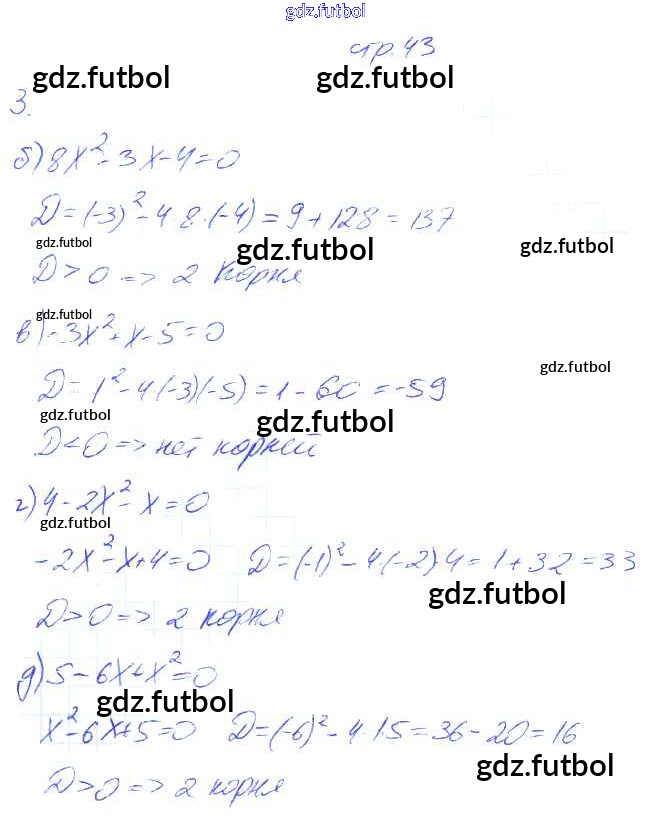 gdz.futbol
стр. 43
gdz.futbol gdz.futbol
3.
б) 8x² - 3x - 4 = 0
D = (-3)² - 4·8·(-4) = 9 + 128 = 137
gdz.futbol gdz.futbol gdz.futbol
D > 0 => 2 корня
gdz.futbol
в) -3x² + x - 5 = 0
gdz.futbol
D = 1² - 4(-3)(-5) = 1 - 60 = -59
gdz.futbol gdz.futbol
D < 0 => нет корней
г) 4 - 2x² - x = 0
gdz.futbol
-2x² - x + 4 = 0 D = (-1)² - 4(-2)·4 = 1 + 32 = 33
gdz.futbol
D > 0 => 2 корня
д) 5 - 6x + x² = 0
gdz.futbol
x² - 6x + 5 = 0 D = (-6)² - 4·1·5 = 36 - 20 = 16
gdz.futbol
D > 0 => 2 корня